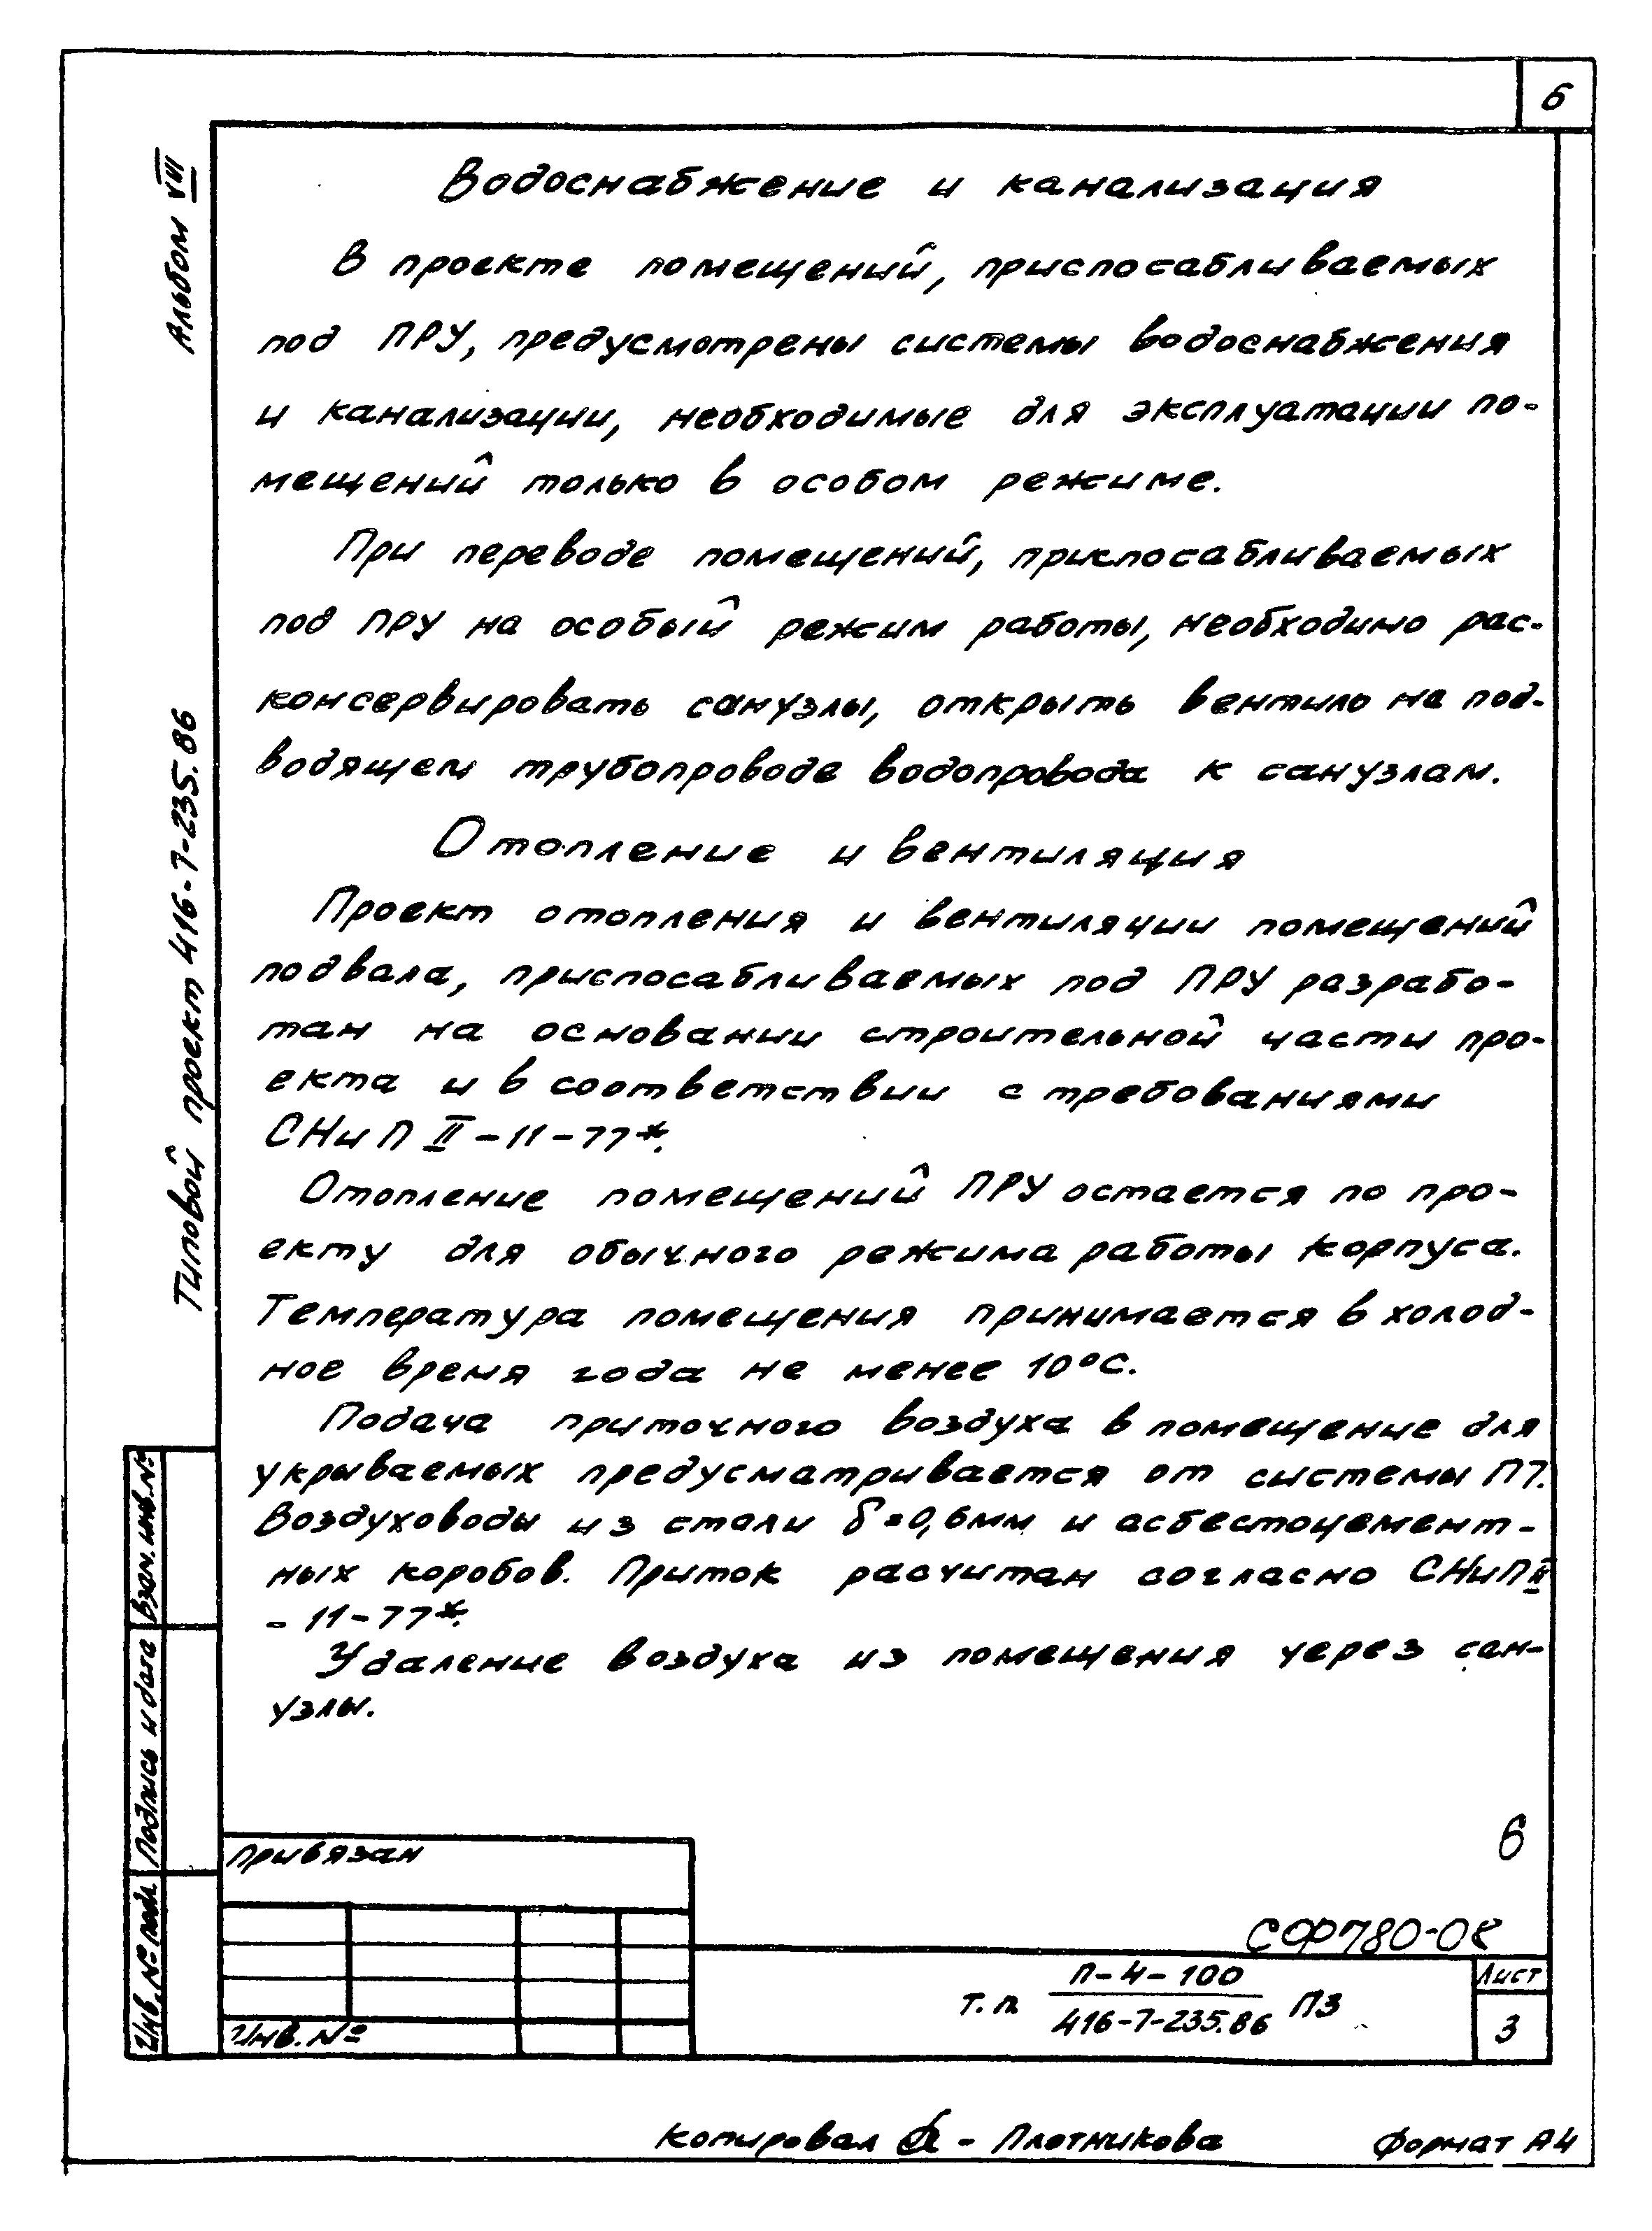 6
Альбом VIII
Типовой проект 416-7-235.86
Водоснабжение и канализация
В проекте помещений, приспосабливаемых
под ПРУ, предусмотрены системы водоснабжения
и канализации, необходимые для эксплуатации по-
мещений только в особом режиме.
При переводе помещений, приспосабливаемых
под ПРУ на особый режим работы, необходимо рас-
консервировать санузлы, открыть вентиль на под-
водящем трубопроводе водопровода к санузлам.
Отопление и вентиляция
Проект отопления и вентиляции помещений
подвала, приспосабливаемых под ПРУ разрабо-
тан на основании строительной части про-
екта и в соответствии с требованиями
СНиП II-11-77*.
Отопление помещений ПРУ остается по про-
екту для обычного режима работы корпуса.
Температура помещения принимается в холод-
ное время года не менее 10°С.
Подача приточного воздуха в помещение для
укрываемых предусматривается от системы П7.
Воздуховоды из стали δ=0,6мм и асбестоцемент-
ных коробов. Приток расчитан согласно СНиП II
-11-77*.
Удаление воздуха из помещения через сан-
узлы.
Взам. инв. №
Подпись и дата
Инв. № подл.
Привязан
Инв. №
6
СФ780-08
т.п. П-4-100
416-7-235.86 ПЗ
Лист
3
Копировал - Плотникова
Формат А4